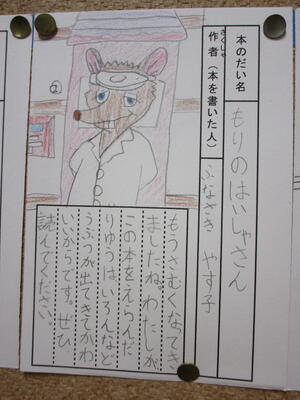 本のだい名
もりのはいしゃさん
作者（本を書いた人）
さくしゃ
ふなざき　やす子
②
もうさむくなってき
ましたね。わたしが
この本をえらんだ
りゆうは、いろんなど
うぶつが出てきてかわ
いいからです。ぜひ
読んでください。